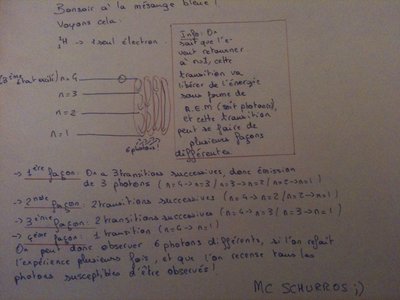 Bonsoir à la mésange bleue !
Voyons cela :
¹₁H → 1 seul électron.
Info: On
sait que l'e-
veut retourner
à n=1, cette
transition va
libérer de l'énergie
sous forme de
R.E.M (soit photons),
et cette transition
peut se faire de
plusieurs façons
différentes.
n=4
n=3
n=2
n=1
6 photons !
→ 1ère façon: On a 3 transitions successives, donc émission
de 3 photons (n=4→n=3/n=3→n=2/n=2→n=1)
→ 2nde façon: 2 transitions successives (n=4→n=2/n=2→n=1)
→ 3ème façon: 2 transitions successives (n=4→n=3/n=3→n=1)
→ 4ème façon: 1 transition (n=4→n=1)
On peut donc observer 6 photons différents, si l'on refait
l'expérience plusieurs fois, et que l'on recense tous les
photons susceptibles d'être observés !
MC SCHURROS ;)